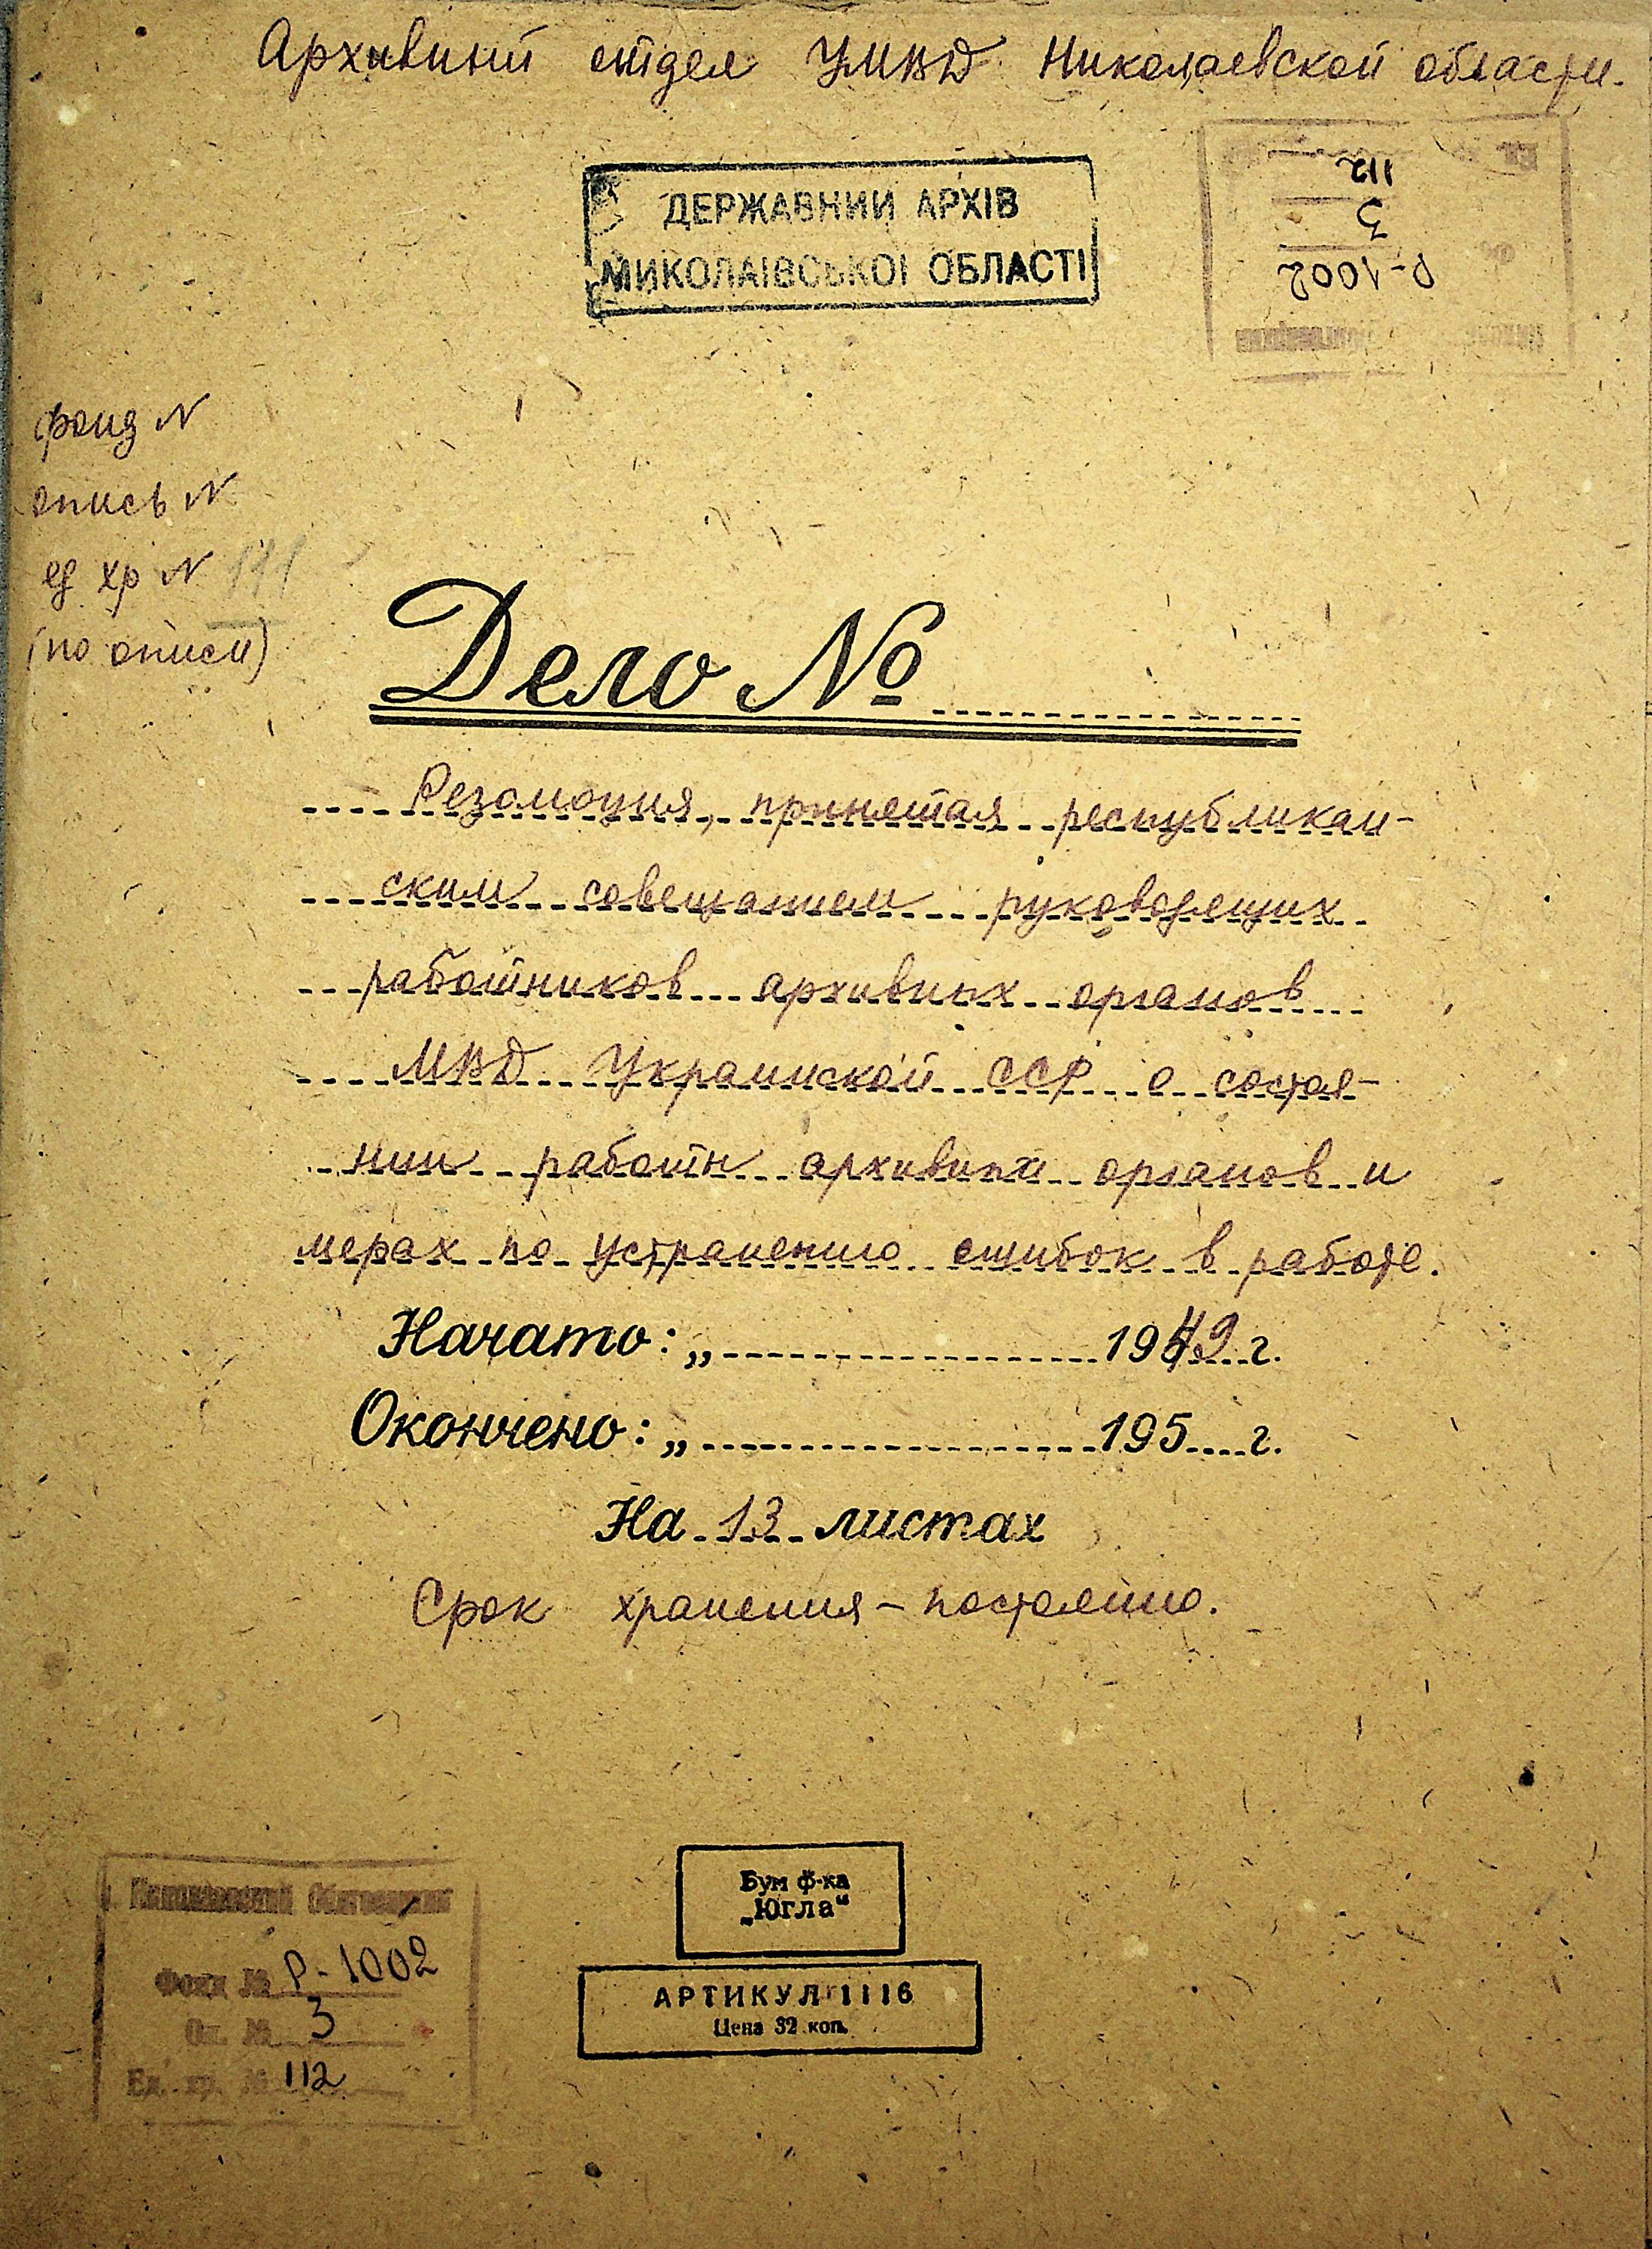 Архивный отдел УМВД Николаевской области.
ДЕРЖАВНИЙ АРХІВ
МИКОЛАЇВСЬКОЇ ОБЛАСТІ
112
3
Р-1002
фонд N
опись N
ед хр N 111
(по описи)
Дело №
Резолюция, принятая республикан-
ским совещанием руководящих
работников архивных органов
МВД Украинской ССР о состоя-
нии работы архивных органов и
мерах по устранению ошибок в работе.
Начато: „ 1949 г.
Окончено: „ 195 г.
На 13 листах
Срок хранения - постоянно.
Бум ф-ка
„Югла“
АРТИКУЛ 1116
Цена 32 коп.
Николаевский Облгосархив
Фонд № Р-1002
Оп. № 3
Ед. хр. № 112